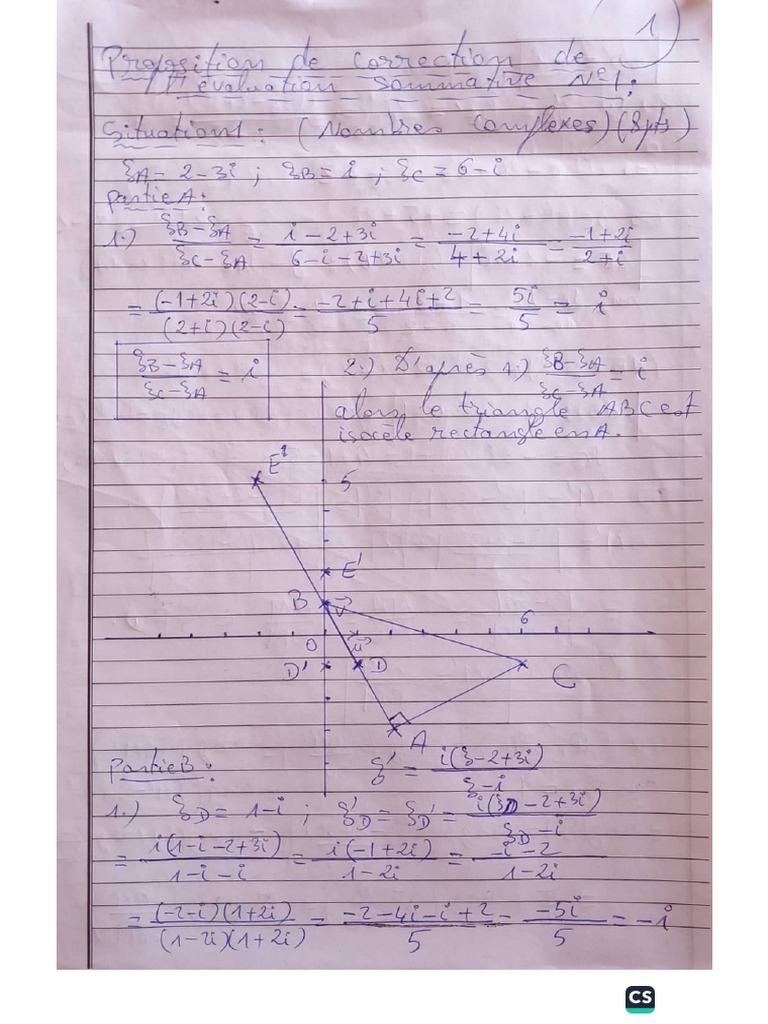 1
Proposition de correction de
l'évaluation sommative N°1:
Situation1: (Nombres Complexes)(8pts)
zA = 2-3i ; zB = i ; zC = 6-i
Partie A:
1.) (zB-zA)/(zC-zA) = (i-2+3i)/(6-i-2+3i) = (-2+4i)/(4+2i) = (-1+2i)/(2+i)
= ((-1+2i)(2-i))/((2+i)(2-i)) = (-2+i+4i+2)/5 = 5i/5 = i
(zB-zA)/(zC-zA) = i
2.) D'après 1.) (zB-zA)/(zC-zA) = i
alors le triangle ABC est
isocèle rectangle en A.
E'
5
E'
B
v
6
O
u
D'
D
C
A
Partie B:
z' = i(z-2+3i)/(z-i)
1.) zD = 1-i ; z'D = zD' = i(zD-2+3i)/(zD-i)
= i(1-i-2+3i)/(1-i-i) = i(-1+2i)/(1-2i) = (-i-2)/(1-2i)
= ((-2-i)(1+2i))/((1-2i)(1+2i)) = (-2-4i-i+2)/5 = -5i/5 = -i
CS